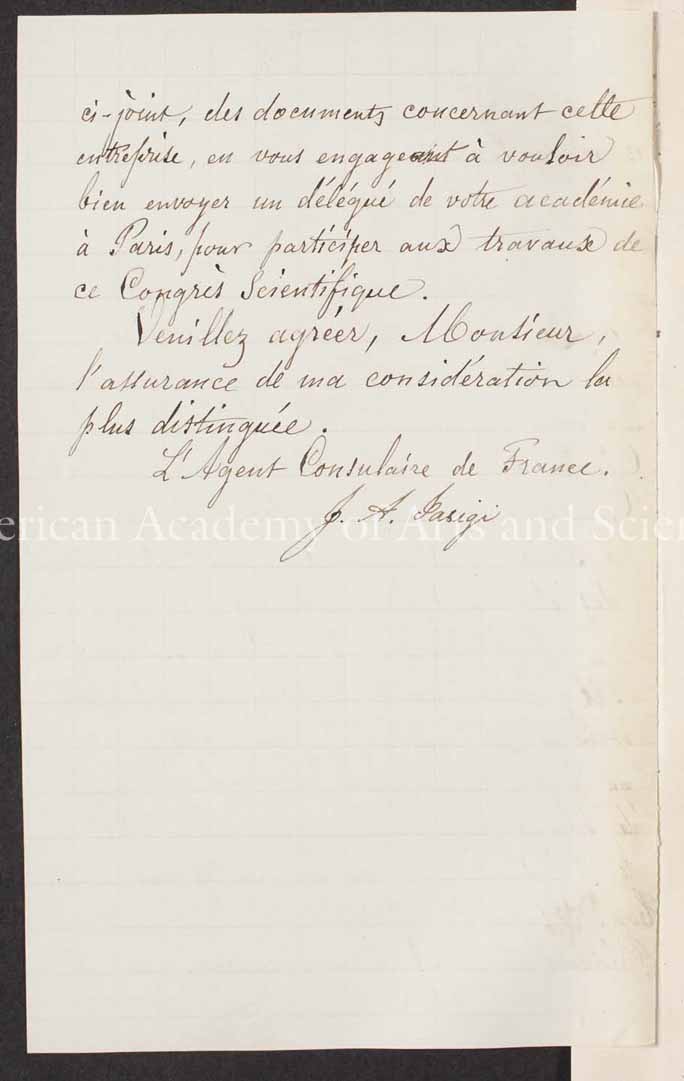 ci-joint, des documents concernant cette
entreprise, en vous engageant à vouloir
bien envoyer un délégué de votre académie
à Paris, pour participer aux travaux de
ce Congrès Scientifique.
Veuillez agréer, Monsieur,
l'assurance de ma considération la
plus distinguée.
L'Agent Consulaire de France.
J. A. Iasigi
erican Academy of Arts and Scien